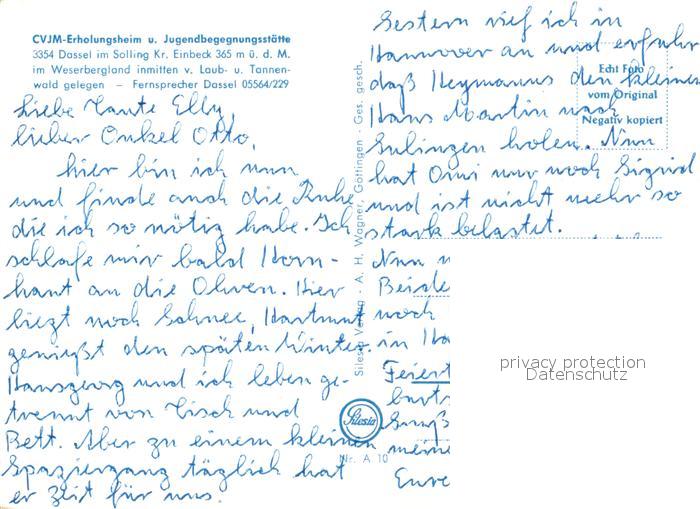 CVJM-Erholungsheim u. Jugendbegegnungsstätte
3354 Dassel im Solling Kr. Einbeck 365 m ü. d. M.
im Weserbergland inmitten v. Laub- u. Tannen-
wald gelegen – Fernsprecher Dassel 05564/229
Liebe Tante Elly,
lieber Onkel Otto,
hier bin ich nun
und finde auch die Ruhe
die ich so nötig habe. Ich
schlafe mir bald Horn-
haut an die Ohren. Hier
liegt noch Schnee, Hartmut
genießt den späten Winter.
Hansgeorg und ich leben ge-
trennt von Tisch und
Bett. Aber zu einem kleinen
Spaziergang täglich hat
er Zeit für uns.
Silesia Verlag · A. H. Wagner, Göttingen · Ges. gesch.
Silesia
Nr. A 10
Gestern rief ich in
Hannover an und erfuhr
daß Heymanns den kleinen
Hans Martin nach
Sulingen holen. Nun
hat Omi nur noch Sigrid
und ist nicht mehr so
stark belastet.
Echt Foto
vom Original
Negativ kopiert
Nun
Beide
noch
in Ha
Feiert
burts
meine
Eure
privacy protection
Datenschutz